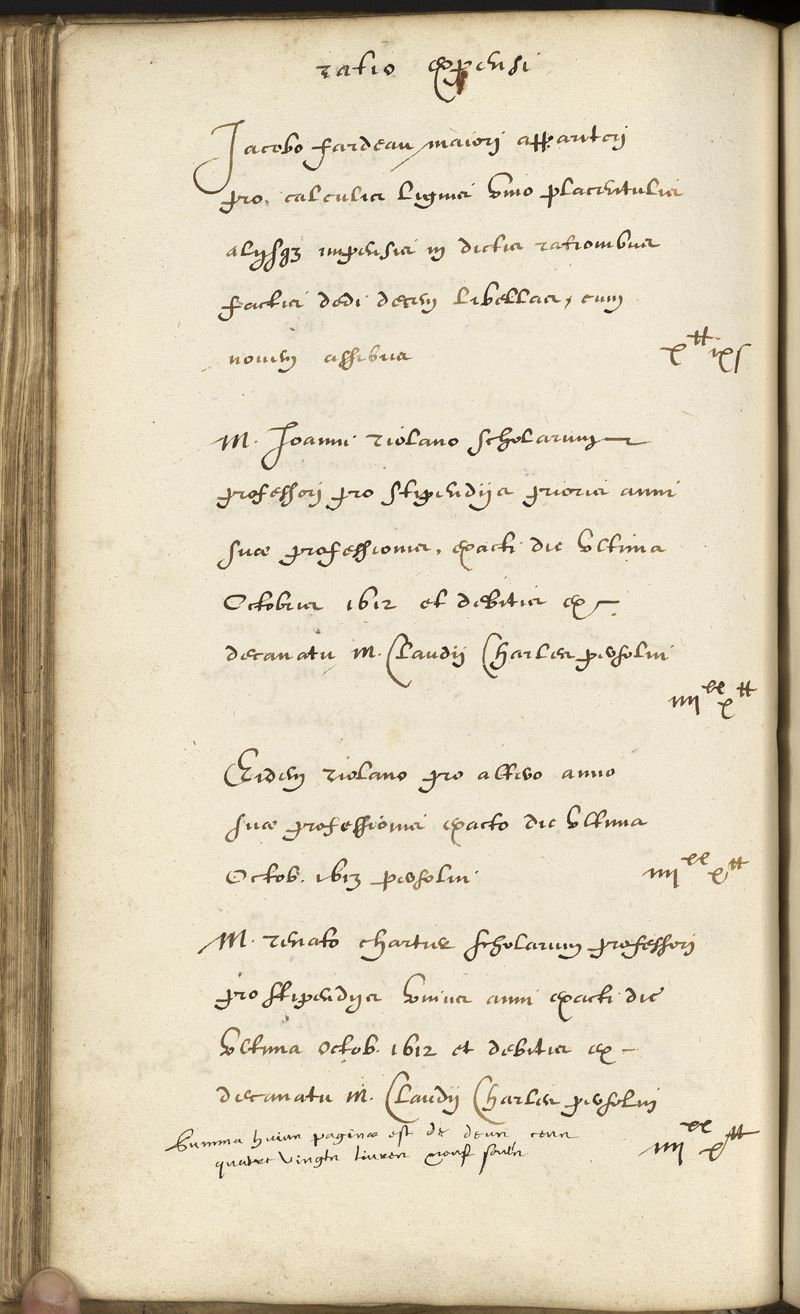 ratio expensi
Jacobo fardeau maiorj apparitorj
pro calculis ligneis vino placentulis
alijsq3 impensis in dictis rationibus
factis dedi decem libellas, cum
novem assibus
x# ixs
M. Joanni riolano scholarum
professorj pro stipendijs prioris anni
suæ professionis, exacti die vltima
Octobris 1612 et debitis ex
decanatu M. Claudij Charles persolui
iiii xx x#
Eidem riolano pro altero anno
suæ professionis exacto die vltima
Octob. 1613 persolui
iiii xx x#
M. renato chartier scholarum professorj
pro stipendijs vnius anni exacti die
vltima octob. 1612 et debitis ex
decanatu M. Claudij Charles persolui
iiii xx x#
Summa huius paginæ est de deux cens
quatre vingts livres neuf soulz